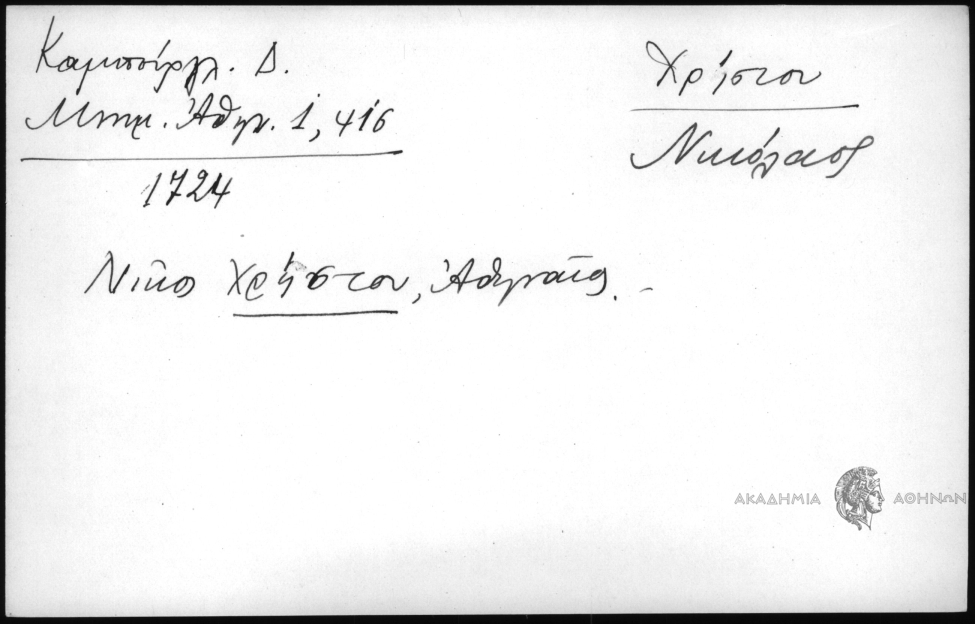 Καμπούργλ. Δ.
Μνημ. Ἀθην. 1, 416
1724
Χρήστου
Νικόλαος
Νῖκος Χρήστου, Ἀθηναῖος. -
ΑΚΑΔΗΜΙΑ ΑΘΗΝΩΝ